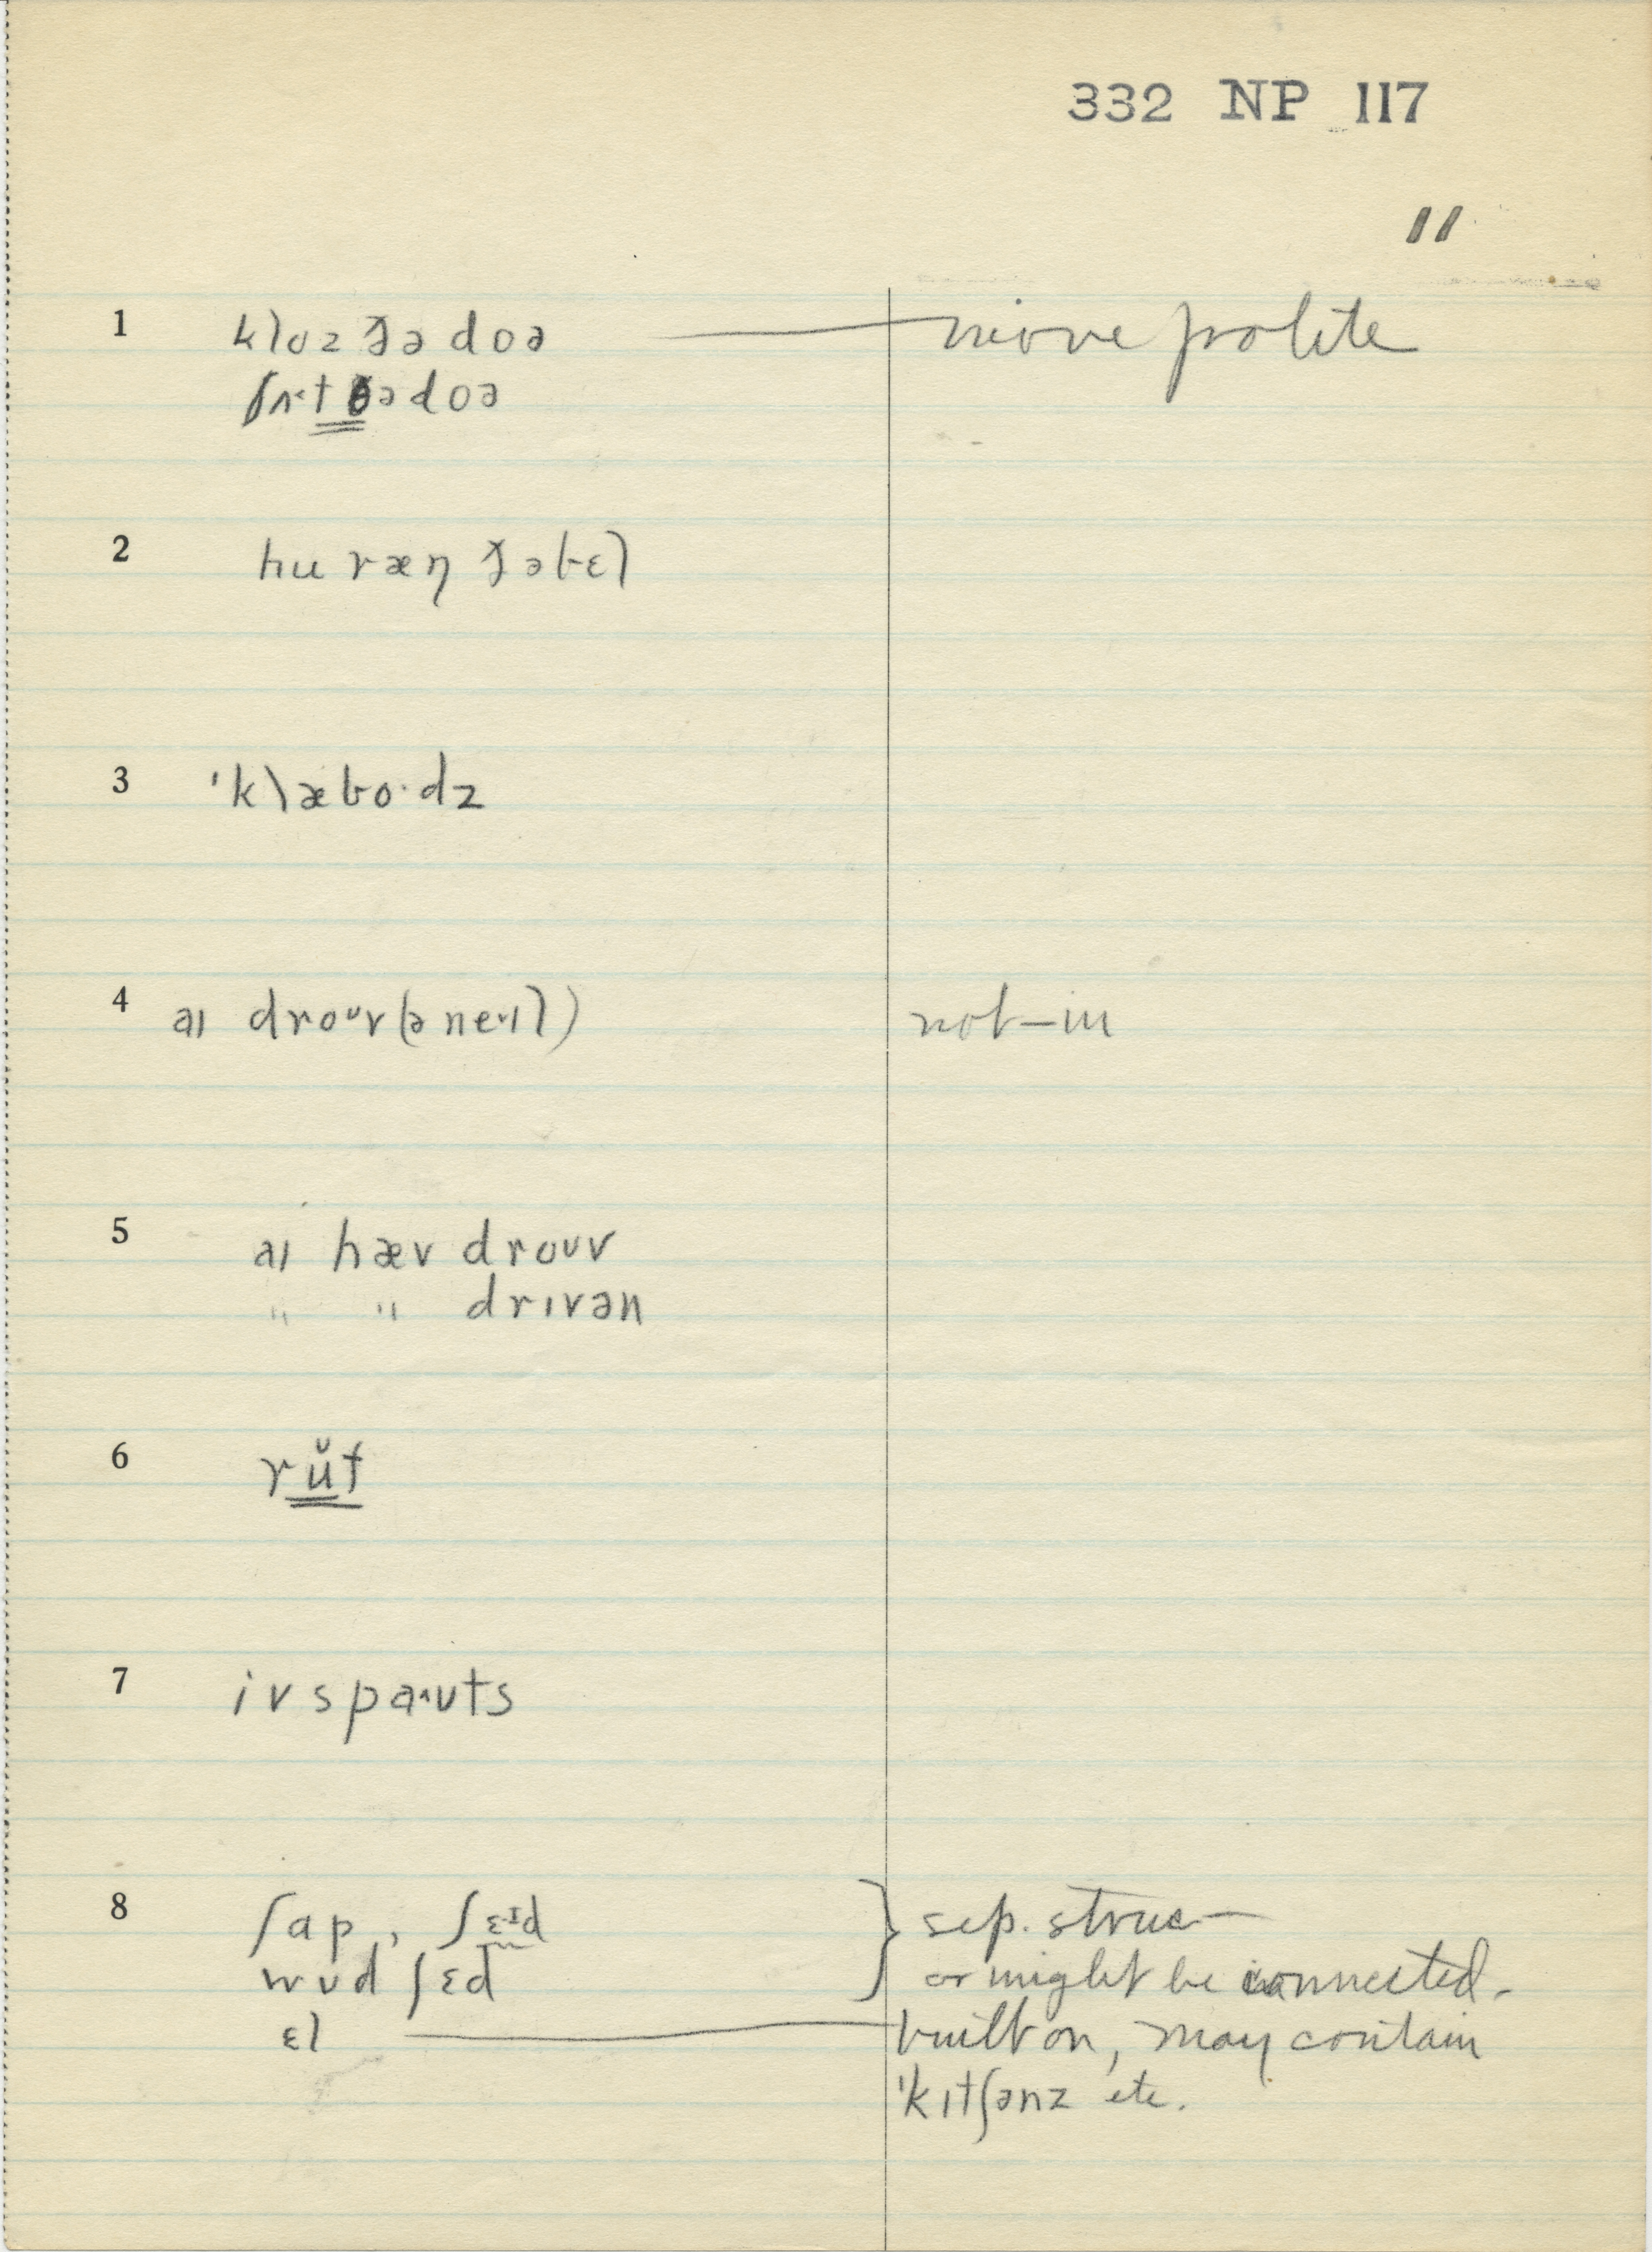 332 NP 117
11
1 kloz ðə doə — more polite
ʃʌt ðə doə
2 hu ræŋ ðə bɛl
3 'klæbo·dz
4 aɪ droᴜv (ə neˑɪl) not-in
5 aɪ hæv droᴜv
" " drɪvən
6 rŭt
7 ivspaˑʊts
8 ʃap, ʃɛˑɪd } sep. struc—
wʊd ʃɛd or might be connected.
ɛl — built on, may contain
'kɪtʃənz etc.